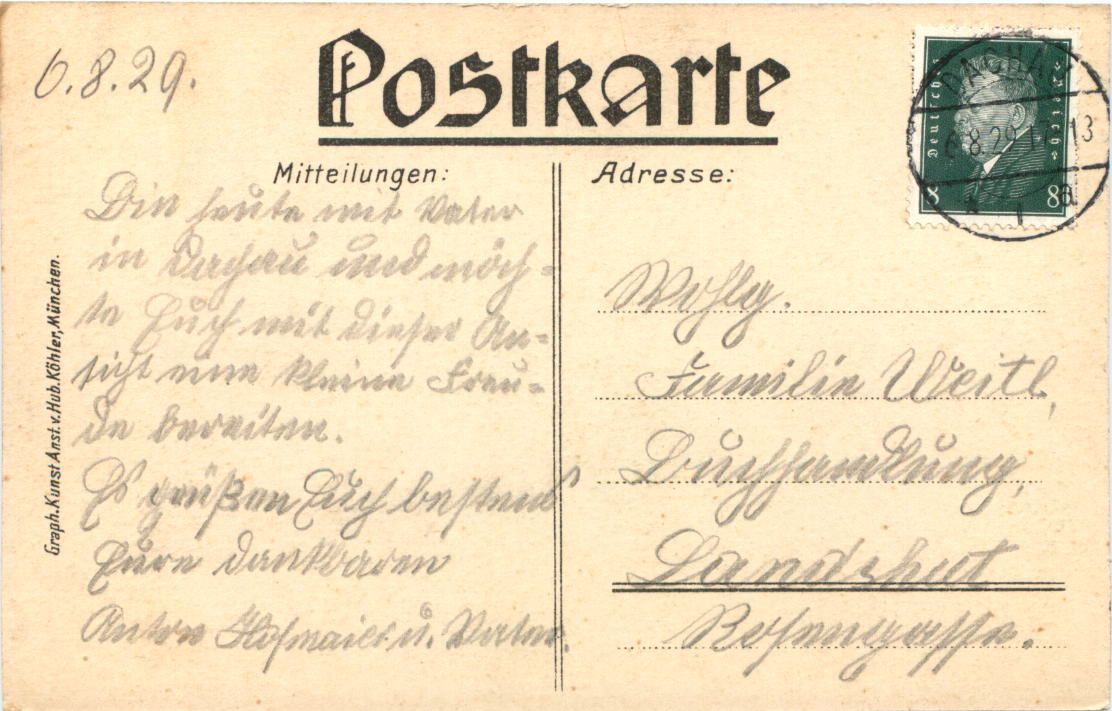 6.8.29.
Postkarte
Mitteilungen:
Bin heute mit Vater
in Dachau und möch-
te Euch mit dieser An-
sicht eine kleine Freu-
de bereiten.
Es grüßen Euch bestens
Eure dankbaren
Anton Hofmaier u. Vater.
Graph. Kunst Anst. v. Hub. Köhler, München.
Adresse:
Wohlg.
Familie Weitl,
Buchhandlung,
Landshut
Rosengasse.
Deutsches Reich
8 8
DACHAU
6.8.29.17-13